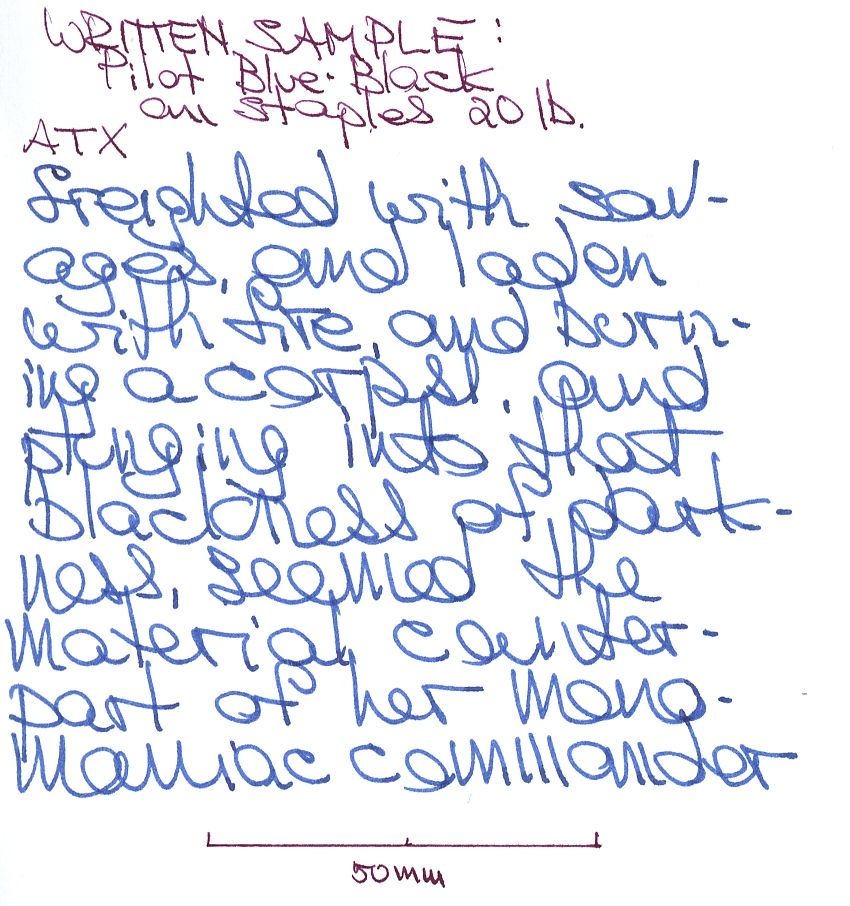 WRITTEN SAMPLE:
Pilot Blue-Black
on Staples 20 lb.
ATX
freighted with sav-
ages, and laden
with fire, and burn-
ing a corpse, and
plunging into that
blackness of dark-
ness, seemed the
material counter-
part of her mono-
maniac commander
50mm